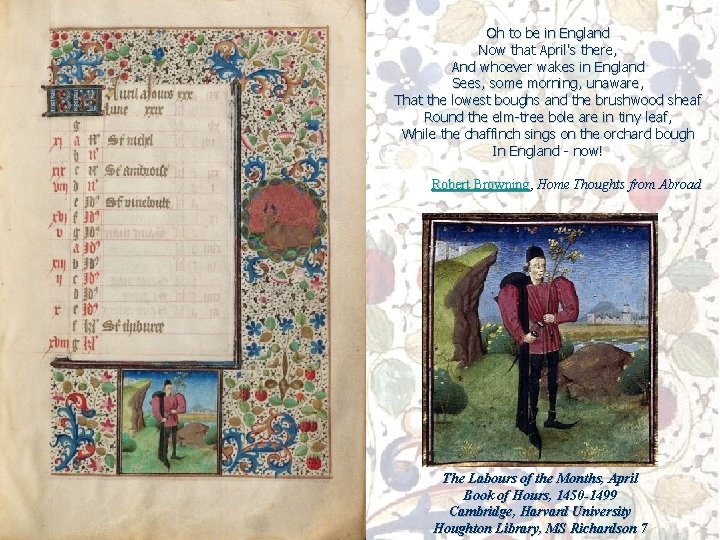 Auril a Jours xxx
Lune xxix
g
xj a
b
xix c St ambroise
viij d
e
xvj f
v g
a
xiij b
ij c
d
x e
f St tiburce
xviij g
Oh to be in England
Now that April's there,
And whoever wakes in England
Sees, some morning, unaware,
That the lowest boughs and the brushwood sheaf
Round the elm-tree bole are in tiny leaf,
While the chaffinch sings on the orchard bough
In England - now!
Robert Browning, Home Thoughts from Abroad
The Labours of the Months, April
Book of Hours, 1450-1499
Cambridge, Harvard University
Houghton Library, MS Richardson 7